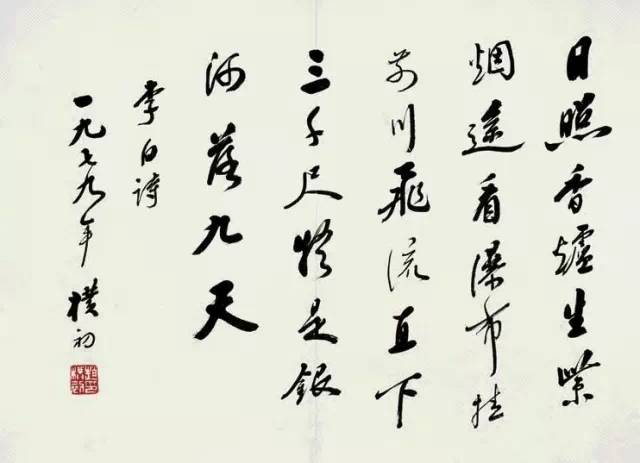 日照香爐生紫
烟遥看瀑布挂
前川飛流直下
三千尺疑是銀
河落九天
李白詩
一九七九年 樸初